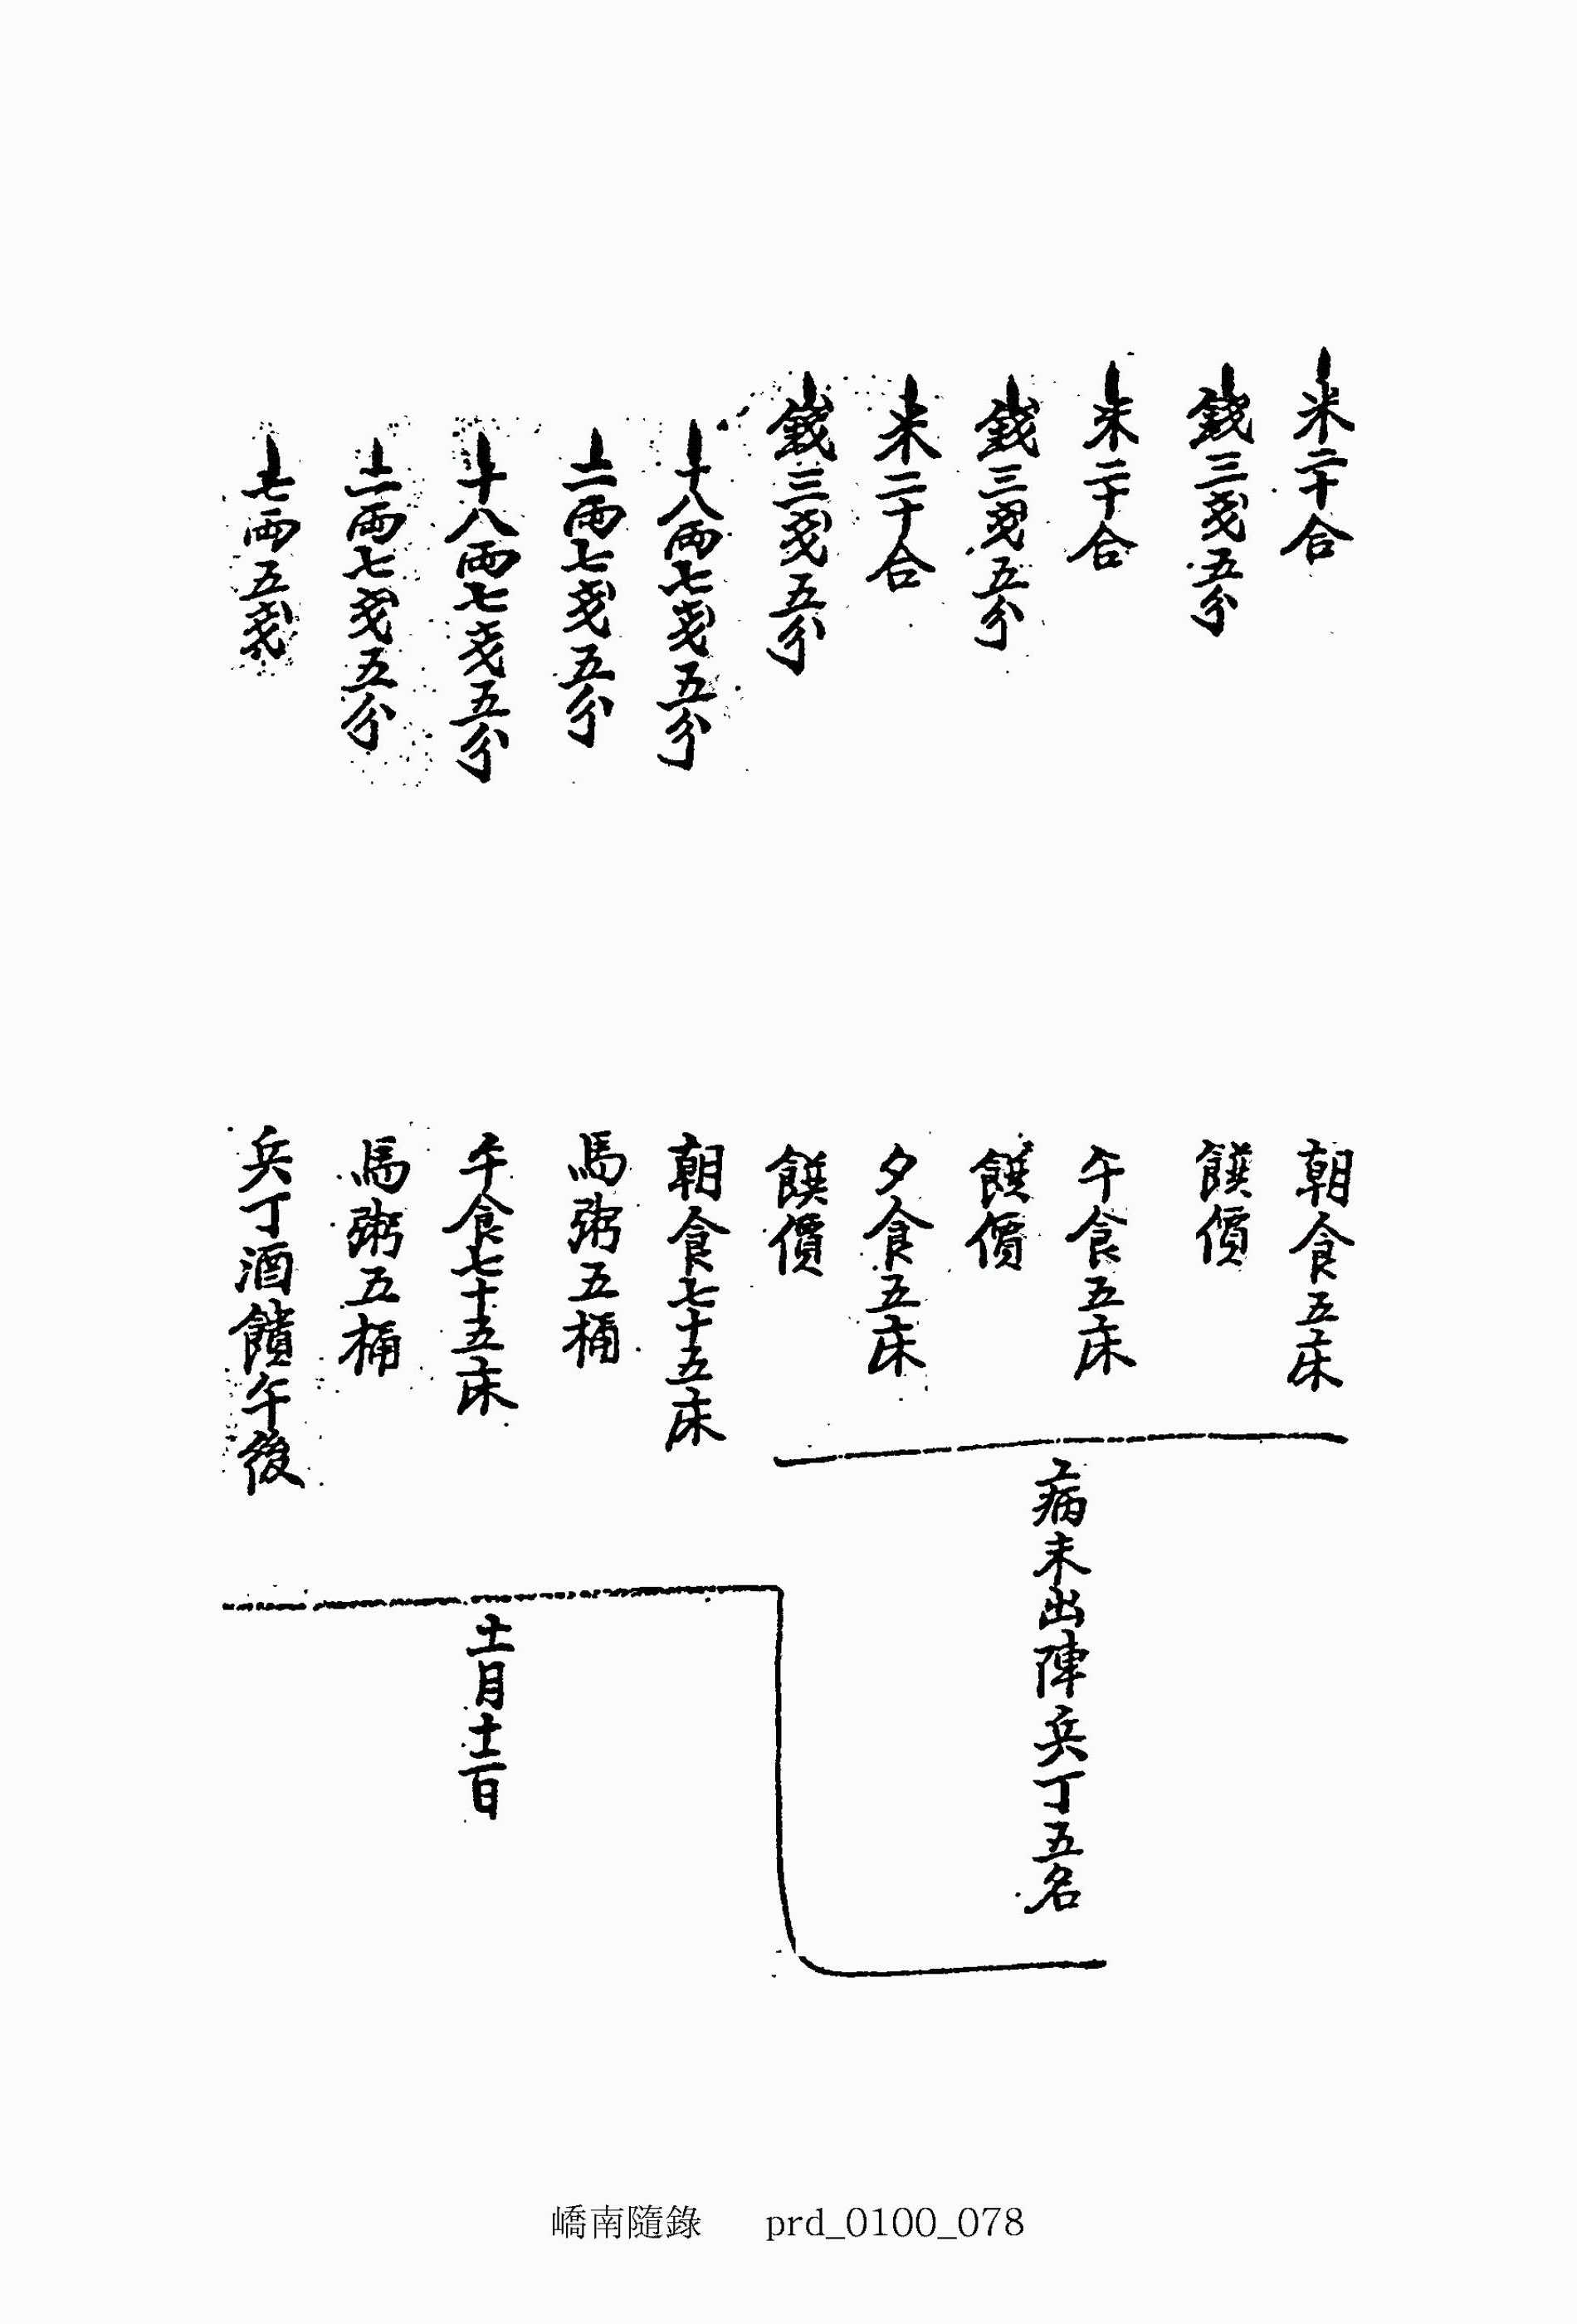 米二十合 朝食五床
錢三戔五分 饌價
米二十合 午食五床
錢三戔五分 饌價
米二十合 夕食五床
錢三戔五分 饌價
病未出陣兵丁五名
十八兩七戔五分 朝食七十五床
一兩七戔五分 馬粥五桶
十八兩七戔五分 午食七十五床
一兩七戔五分 馬粥五桶
七兩五戔 兵丁酒饋午後
十一月十二日
嶠南隨錄 prd_0100_078